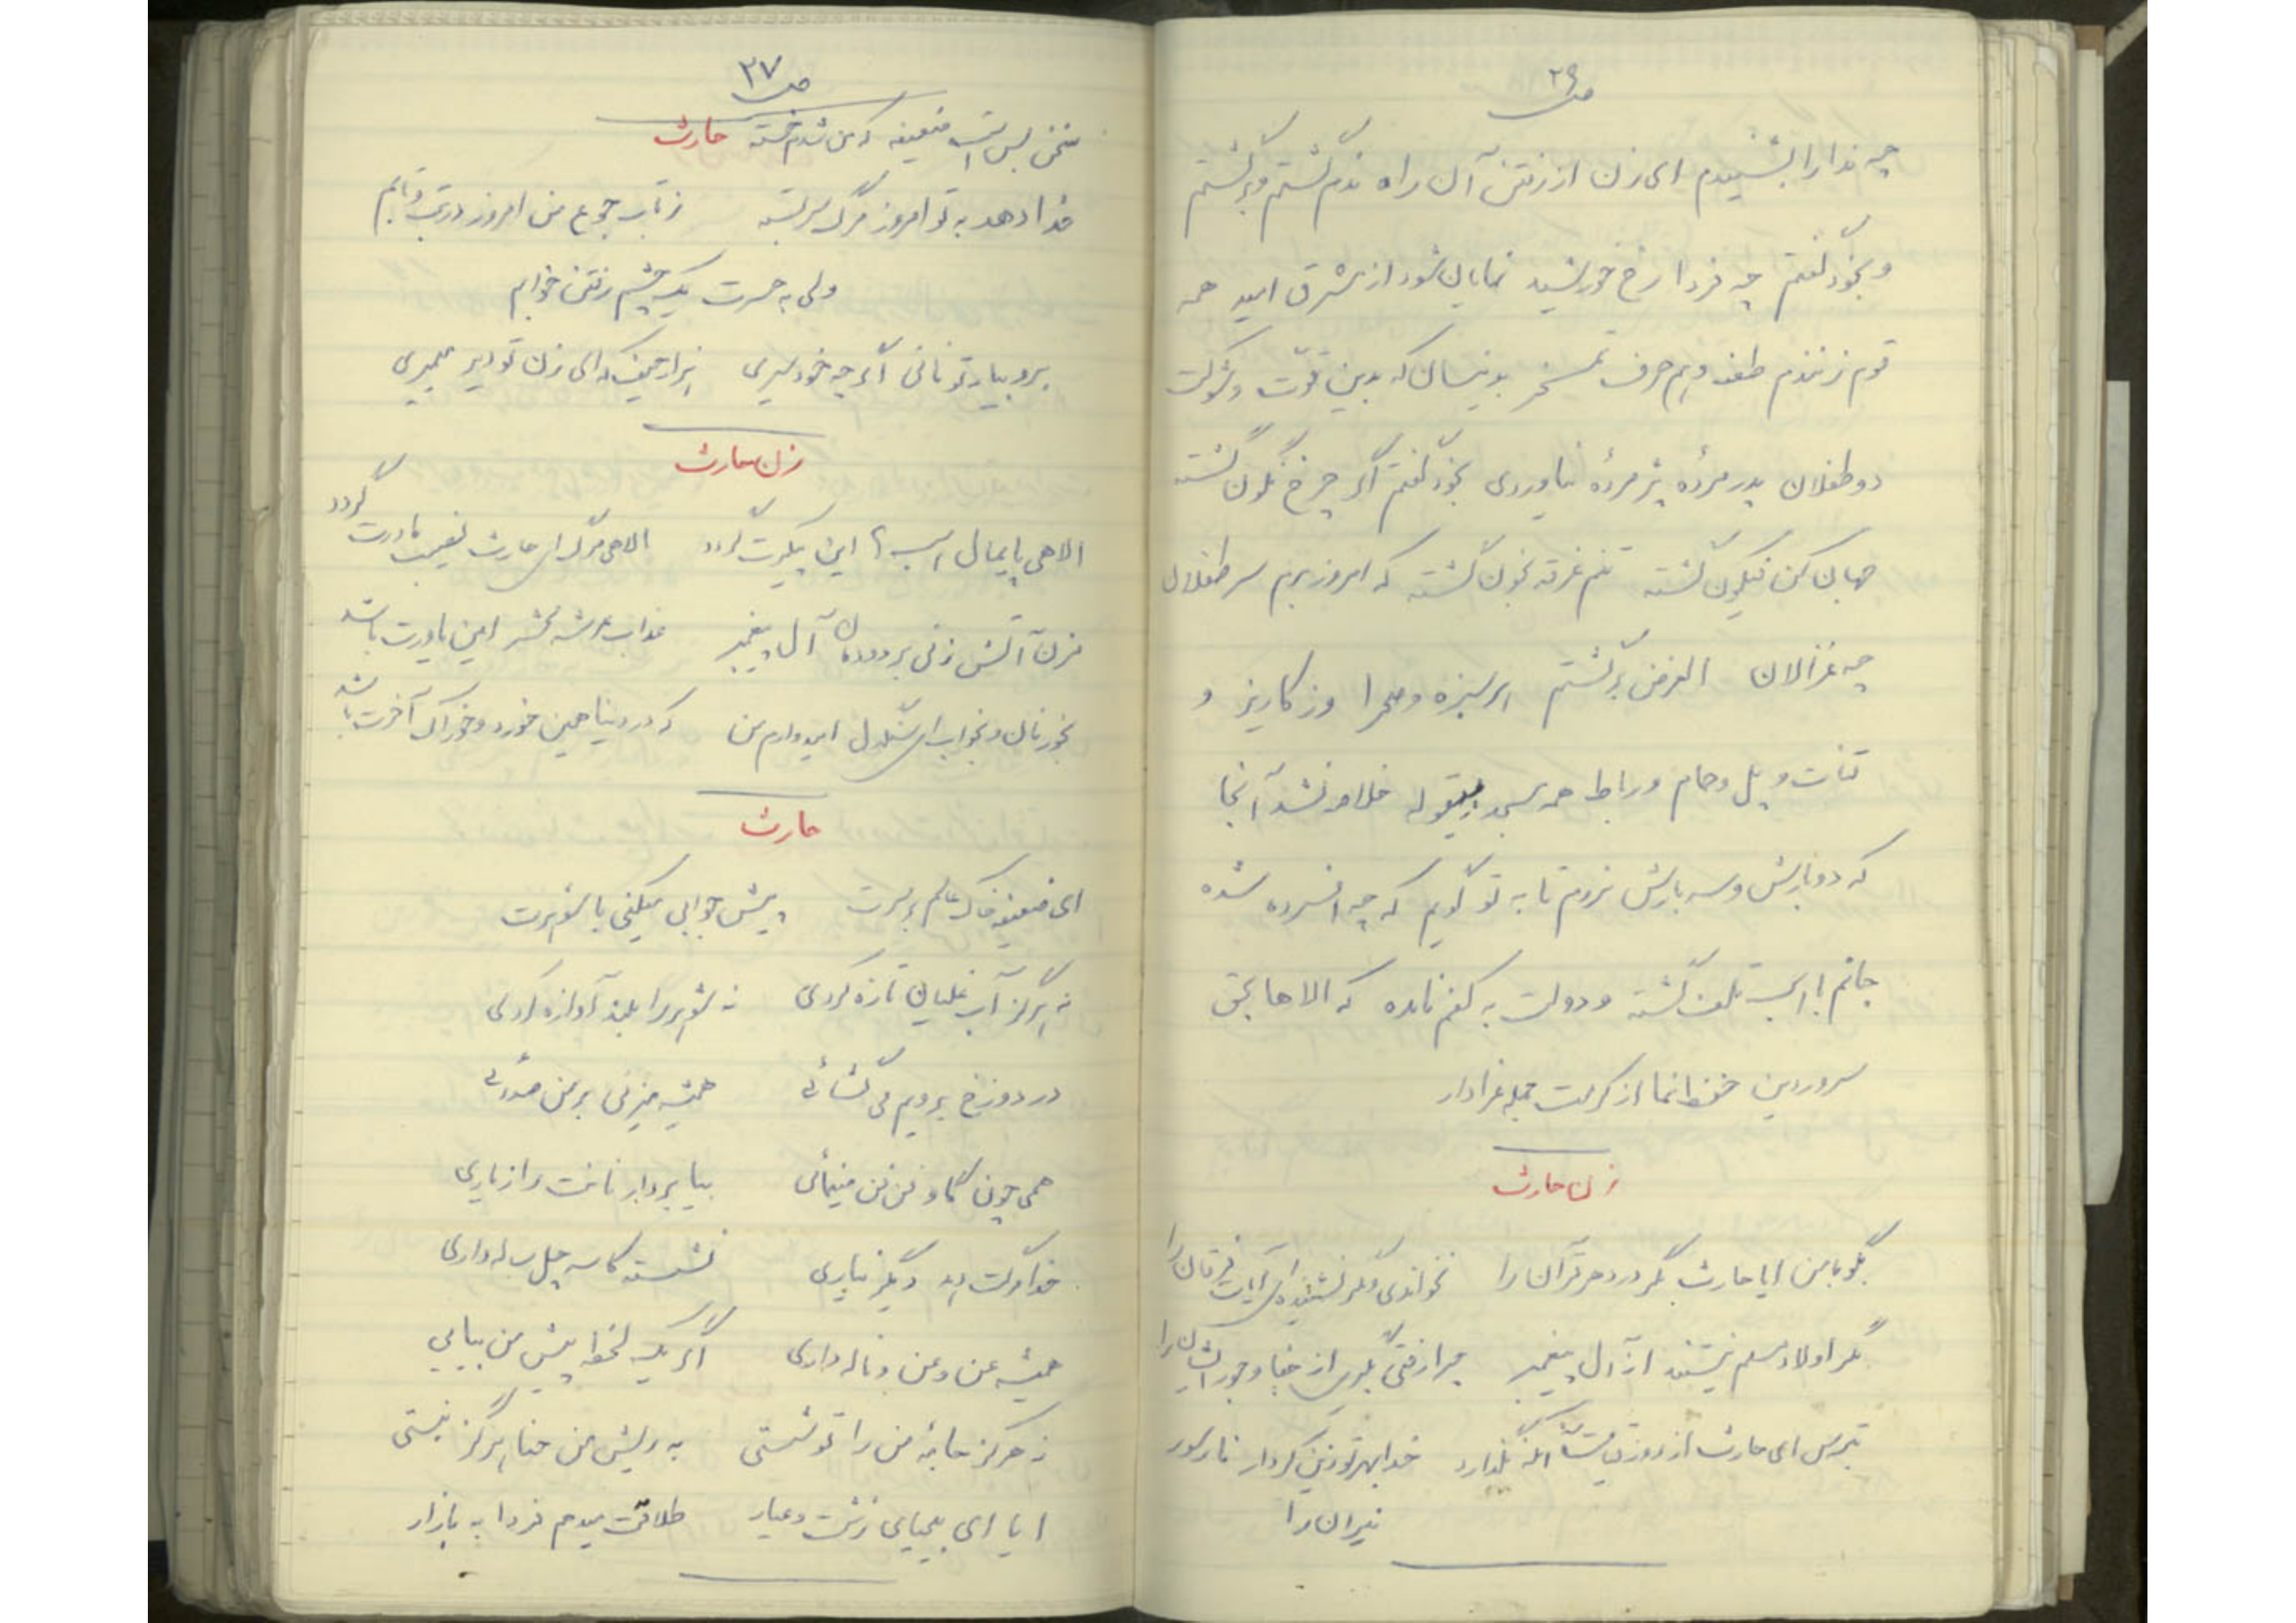 ص ۲۶
چه ندا را بشنیدم ای زن از رفتن آن راه ندم گشتم و برگشتم
و بخود گفتم چه فردا رخ خورشید نمایان شود از مشرق امید همه
قوم زنندم طعنه و هم حرف تمسخر بدینسان که بدین قوت و شوکت
دو طفلان پدر مرده پژمرده نیاوردی بخود گفتم اگر چرخ نگون گشته
جهان کن فیکون گشته تنم غرقه بخون گشته که امروز برم سر طفلان
چه غزالان الغرض برگشتم سر سبزه و صحرا وز کاریز و
قنات و پل و حمام و رباط همه مسجد خلاصه نشد آنجا
که دوبارش و سه بارش نروم تا به تو گویم که چه افسرده شده
جانم اسب تلف گشته و دولت به کفم نامده که الاها بحق
سرور دین حفظ نما از کرمت جمله عزادار
زن حارث
بگو با من ایا حارث مگر در دهر قرآن را نخواندی و مگر نشنیده‌ای آیات فرقان را
مگر اولاد مسلم نیستند از آل پیغمبر چرا رفتی بگیری از جفا و جور ایشان را
بترس ای حارث از روز قیامت آنکه بگذارد خدا بهر تو زین کردار نار سور
نیران را
ص ۲۷
سخن بس است ضعیفه که من شدم خسته حارث
خدا دهد به تو امروز مرگ سربسته ز تاب جوع من امروز در تب و تابم
ولی به حسرت یک چشم رفتن خوابم
برو بیار تو نانی اگر چه خود سیری هزار حیف که ای زن تو دیر میمیری
زن حارث
الاهی پایمال اسب این پیکرت گردد الاهی مرگ ای حارث نصیب مادرت گردد
مزن آتش زنی بر دودمان آل پیغمبر عذاب عرشه محشر این یاورت باشد
بخور نان و بخواب ای سنگدل امیدوارم من که در دنیا همین خورد و خوراک آخرت باشد
حارث
ای ضعیفه خاک عالم بر سرت پیش جوابی میکنی با شوهرت
نه هرگز آب غلیان تازه کردی نه شوهر را بلند آوازه کردی
در دوزخ برویم می گشائی همیشه میزنی بر من صدائی
همی چون گاو فن فن مینمائی بیا بردار نانت را ز یاری
خدا مرگت دهد دیگر نیاری نشسته کاسه چل ساله داری
همیشه عن و عن و ناله داری اگر یک لحظه پیش من بیایی
نه هرگز جامه من را تو شستی به ریش من حنا هرگز نبستی
ایا ای بیحیای زشت و عیار طلاقت میدهم فردا به بازار